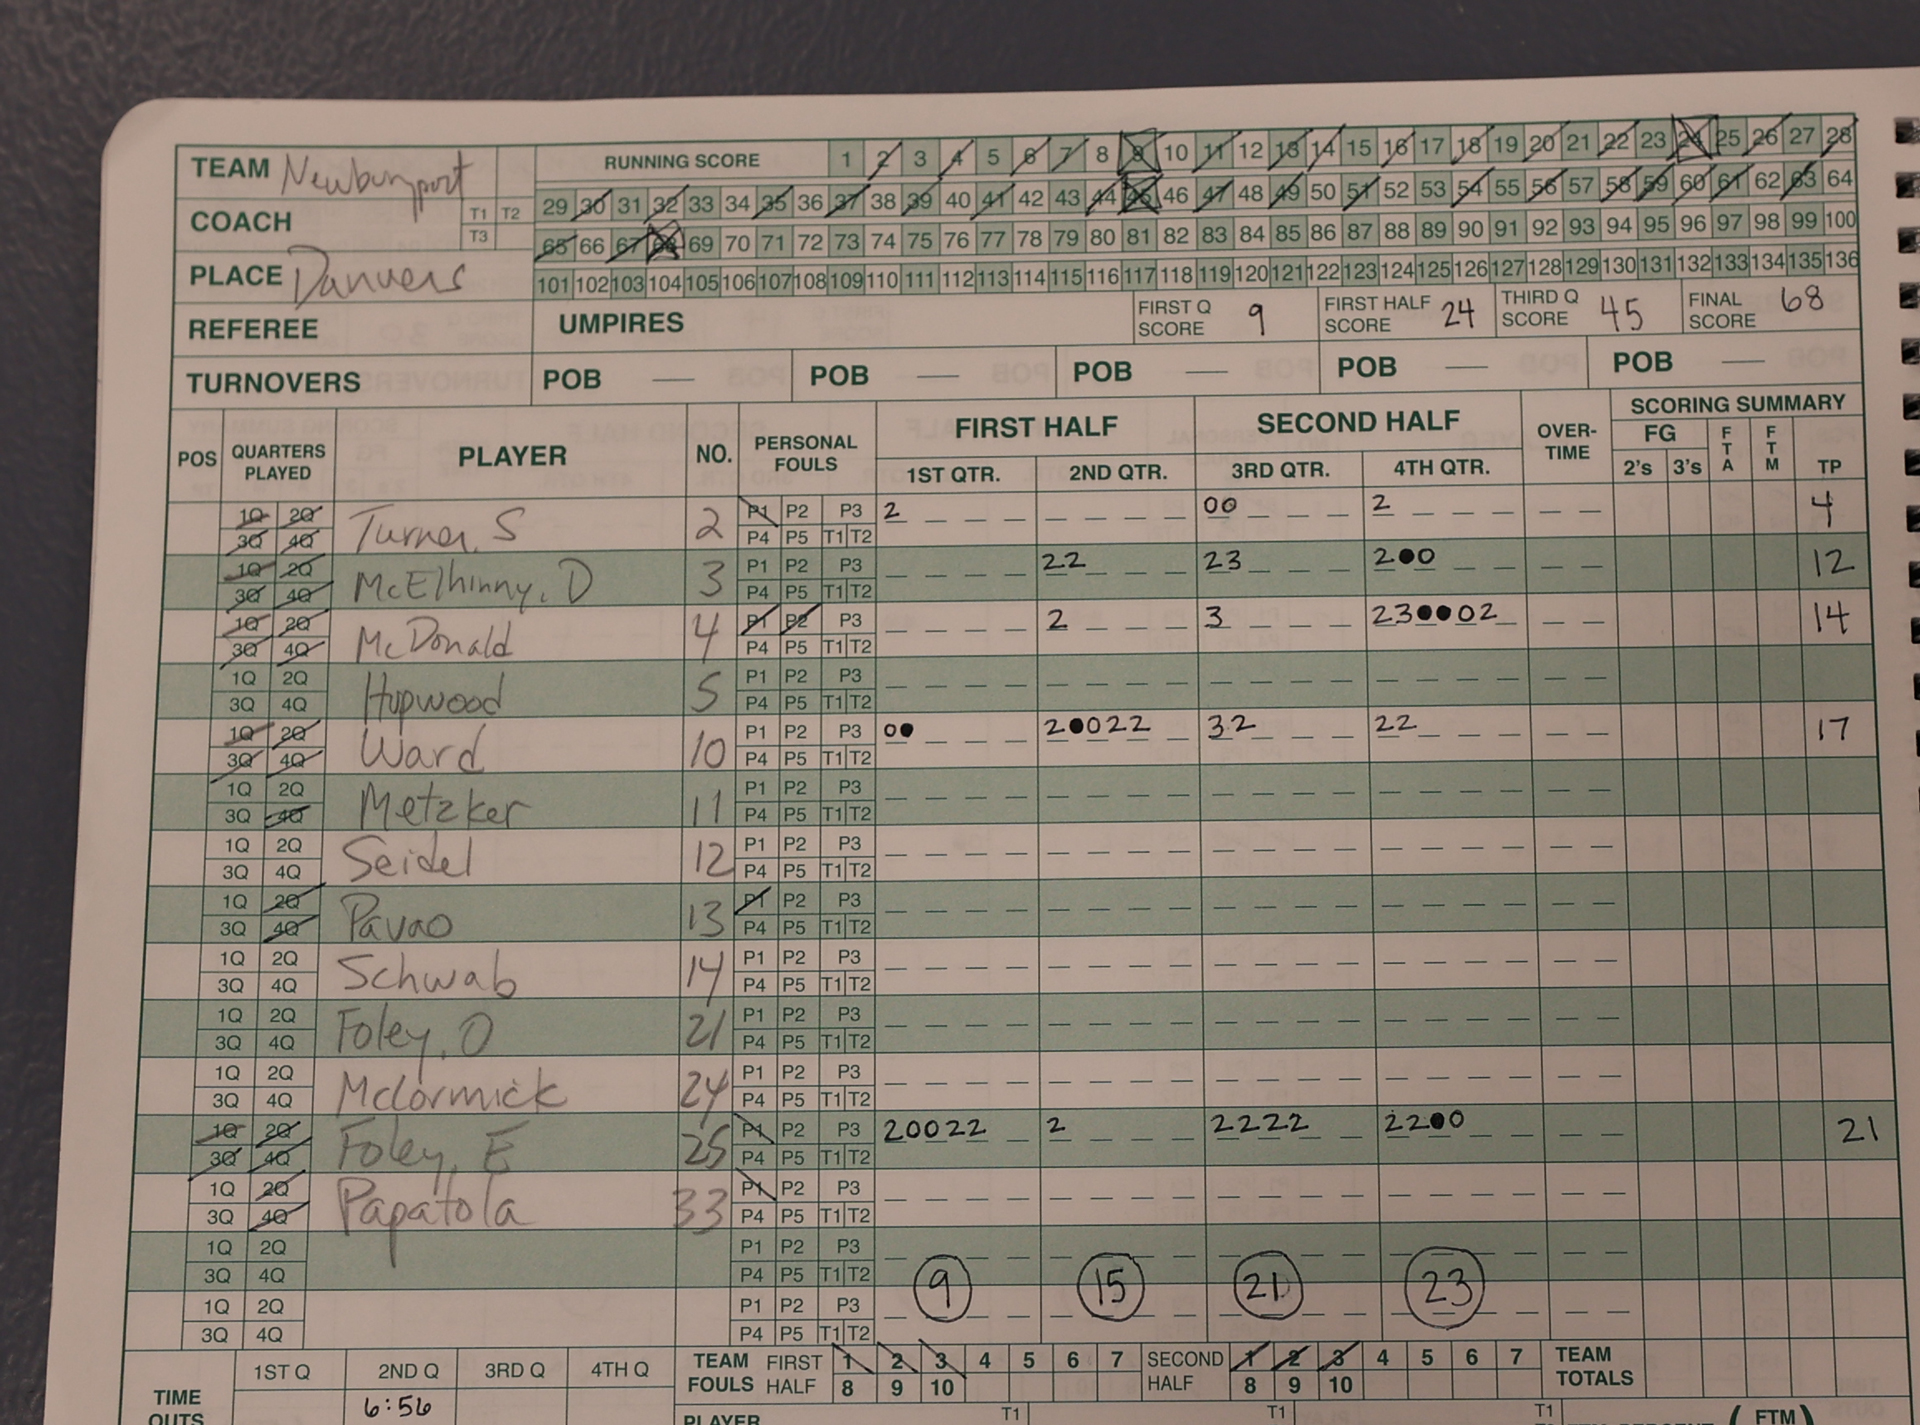 TEAM Newburyport RUNNING SCORE 1 2 3 4 5 6 7 8 9 10 11 12 13 14 15 16 17 18 19 20 21 22 23 24 25 26 27 28
29 30 31 32 33 34 35 36 37 38 39 40 41 42 43 44 45 46 47 48 49 50 51 52 53 54 55 56 57 58 59 60 61 62 63 64
COACH T1 T2 T3
65 66 67 68 69 70 71 72 73 74 75 76 77 78 79 80 81 82 83 84 85 86 87 88 89 90 91 92 93 94 95 96 97 98 99 100
PLACE Danvers 101 102 103 104 105 106 107 108 109 110 111 112 113 114 115 116 117 118 119 120 121 122 123 124 125 126 127 128 129 130 131 132 133 134 135 136
REFEREE UMPIRES FIRST Q SCORE 9 FIRST HALF SCORE 24 THIRD Q SCORE 45 FINAL SCORE 68
TURNOVERS POB — POB — POB — POB — POB —
POS QUARTERS PLAYED PLAYER NO. PERSONAL FOULS FIRST HALF SECOND HALF OVER-TIME SCORING SUMMARY
1ST QTR. 2ND QTR. 3RD QTR. 4TH QTR. FG 2's 3's FTA FTM TP
1Q 2Q Turner, S 2 P1 P2 P3 2 00 2 4
3Q 4Q P4 P5 T1 T2
1Q 2Q McElhinny, D 3 P1 P2 P3 22 23 2●0 12
3Q 4Q P4 P5 T1 T2
1Q 2Q McDonald 4 P1 P2 P3 2 3 23●●02 14
3Q 4Q P4 P5 T1 T2
1Q 2Q Hopwood 5 P1 P2 P3
3Q 4Q P4 P5 T1 T2
1Q 2Q Ward 10 P1 P2 P3 0● 2●022 32 22 17
3Q 4Q P4 P5 T1 T2
1Q 2Q Metzker 11 P1 P2 P3
3Q 4Q P4 P5 T1 T2
1Q 2Q Seidel 12 P1 P2 P3
3Q 4Q P4 P5 T1 T2
1Q 2Q Pavao 13 P1 P2 P3
3Q 4Q P4 P5 T1 T2
1Q 2Q Schwab 14 P1 P2 P3
3Q 4Q P4 P5 T1 T2
1Q 2Q Foley, O 21 P1 P2 P3
3Q 4Q P4 P5 T1 T2
1Q 2Q McCormick 24 P1 P2 P3
3Q 4Q P4 P5 T1 T2
1Q 2Q Foley, E 25 P1 P2 P3 20022 2 2222 22●0 21
3Q 4Q P4 P5 T1 T2
1Q 2Q Papatola 33 P1 P2 P3
3Q 4Q P4 P5 T1 T2
1Q 2Q P1 P2 P3
3Q 4Q P4 P5 T1 T2 9 15 21 23
1Q 2Q P1 P2 P3
3Q 4Q P4 P5 T1 T2
TIME OUTS 1ST Q 2ND Q 3RD Q 4TH Q TEAM FOULS FIRST HALF 1 2 3 4 5 6 7 SECOND HALF 1 2 3 4 5 6 7 TEAM TOTALS
8 9 10 8 9 10
6:56 PLAYER T1 T1 T1 (FTM)